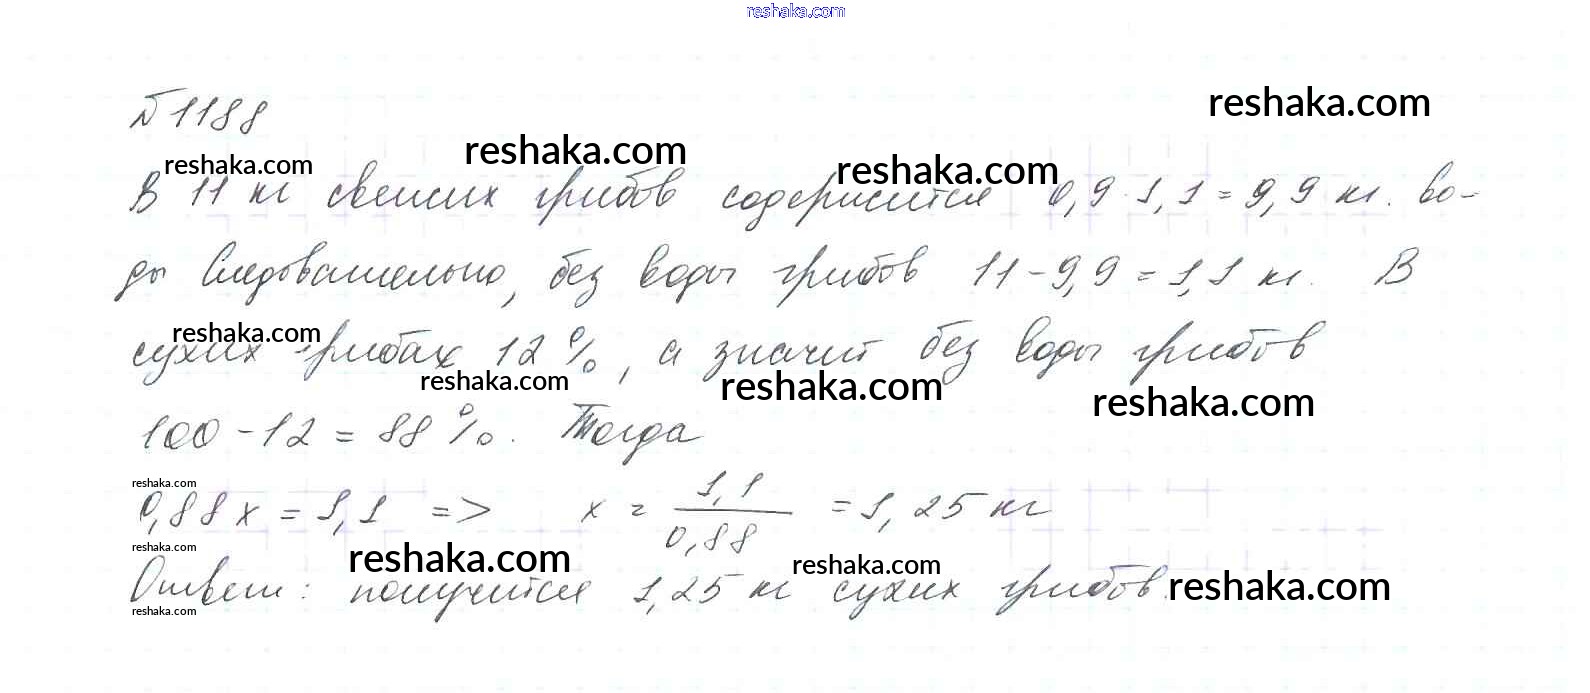 reshaka.com
№1188
reshaka.com
reshaka.com
reshaka.com
reshaka.com
В 11 кг свежих грибов содержится 0,9 · 1,1 = 9,9 кг. во-
ды Следовательно, без воды грибов 11 - 9,9 = 1,1 кг. В
reshaka.com
сухих грибах 12%, а значит без воды грибов
reshaka.com
reshaka.com
reshaka.com
100 - 12 = 88%. Тогда
reshaka.com
0,88x = 1,1 => x = 1,1 / 0,88 = 1,25 кг
reshaka.com
reshaka.com
reshaka.com
Ответ: получится 1,25 кг сухих грибов.
reshaka.com
reshaka.com